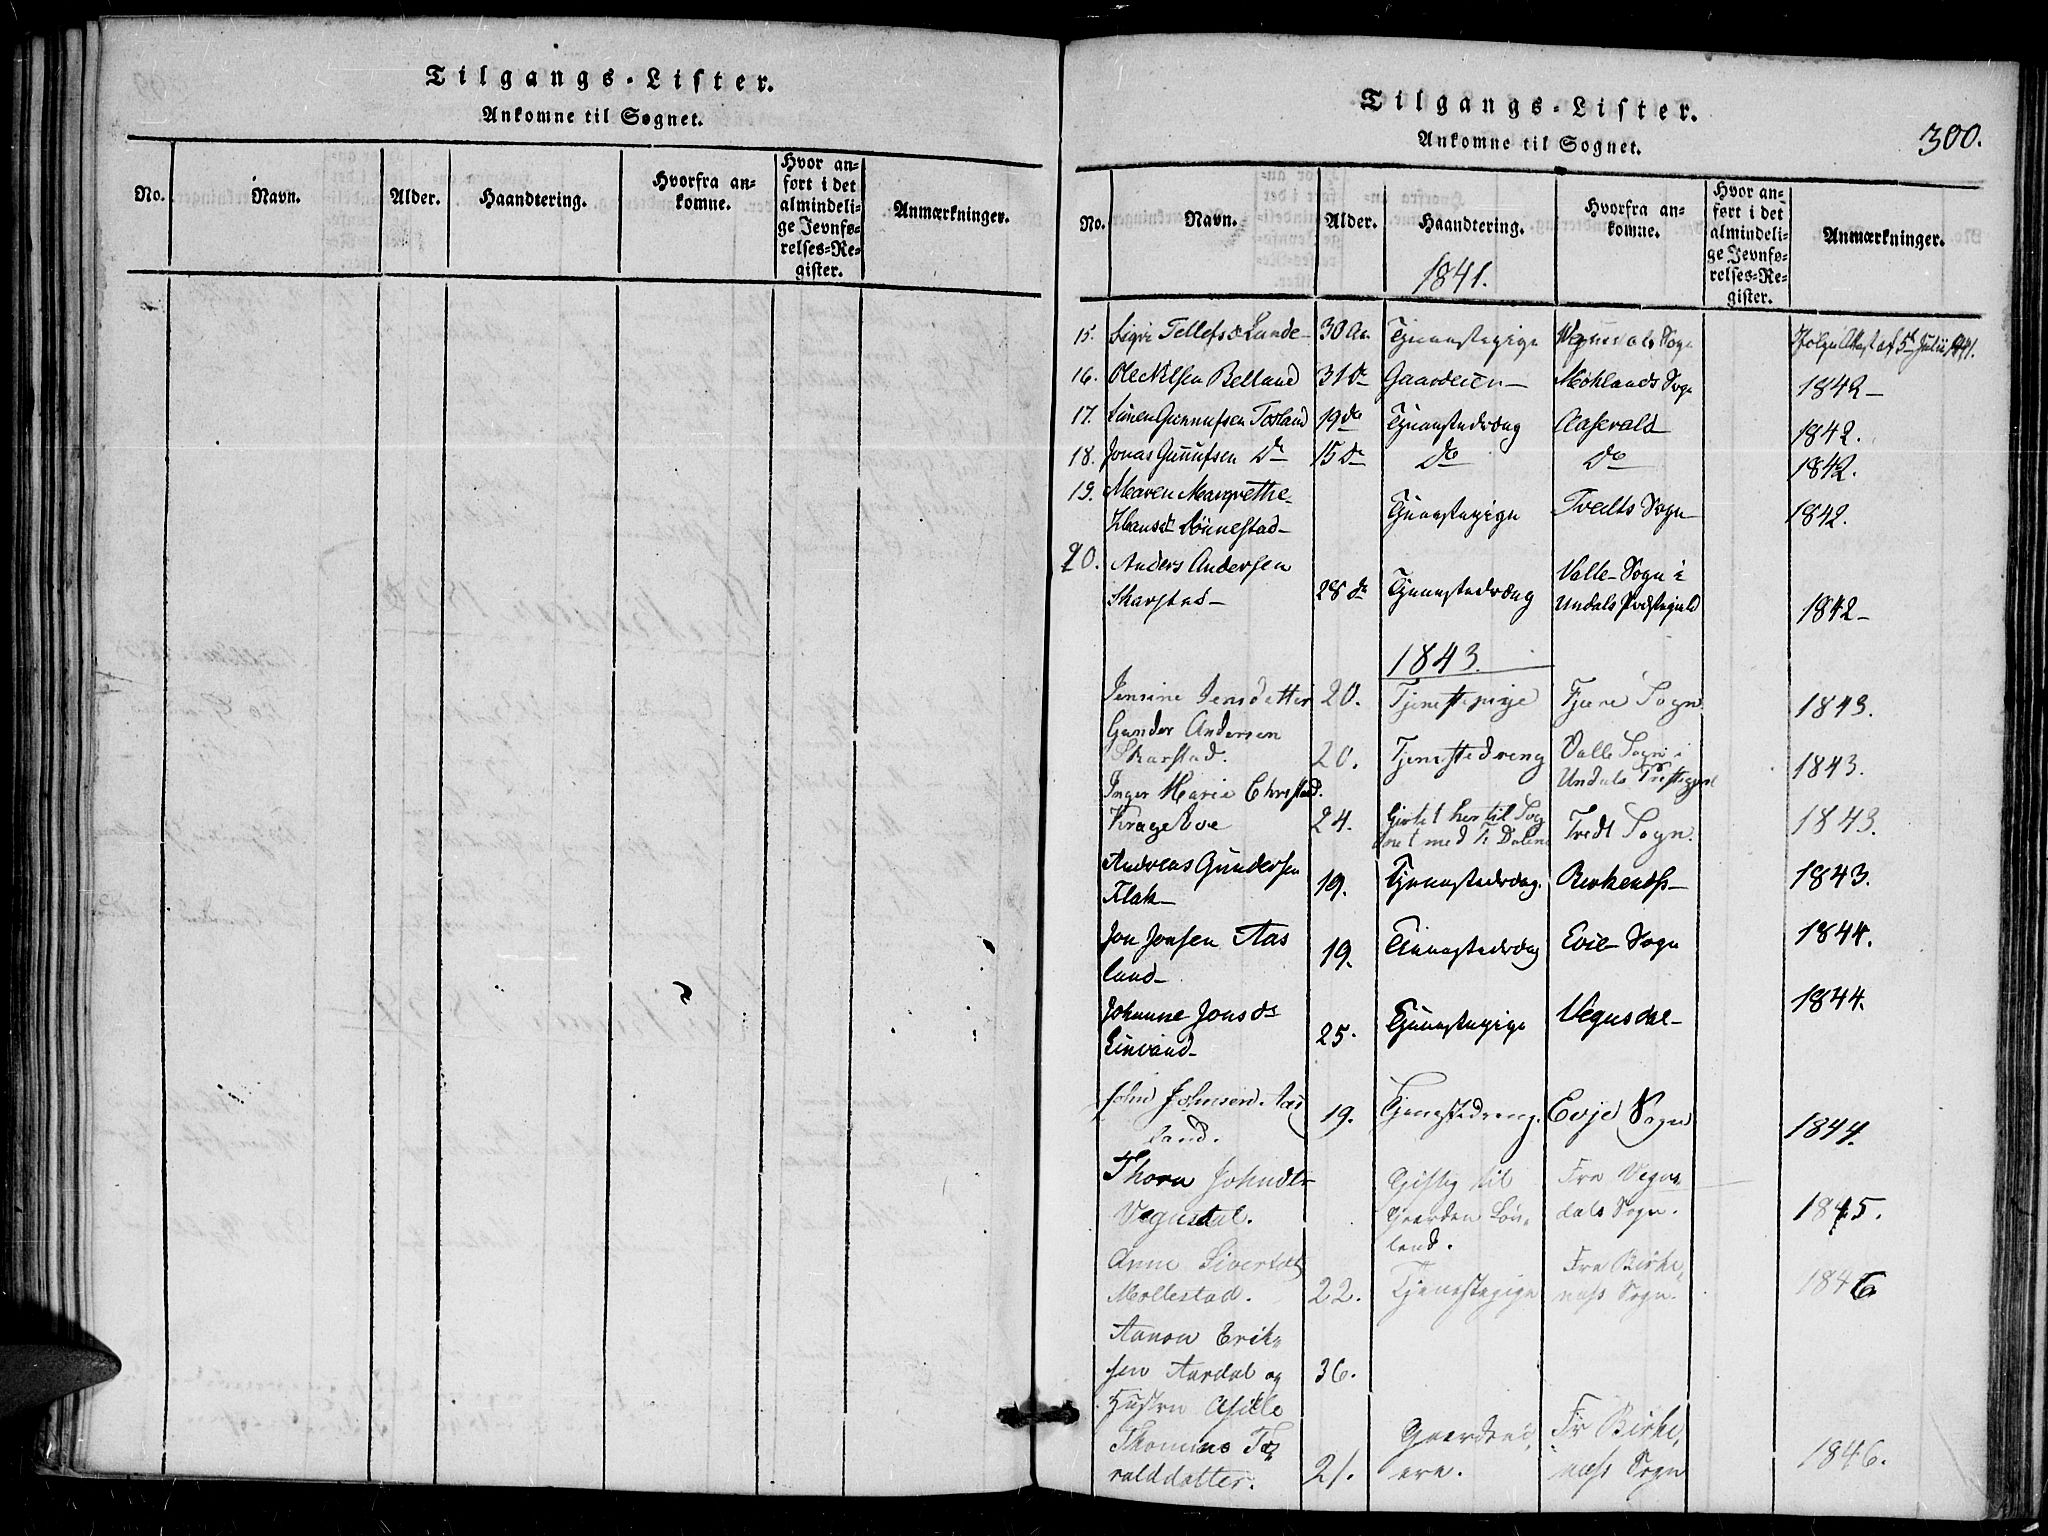 Tilgangs-Lister.
Ankomne til Sognet.
No.
Navn.
Alder.
Haandtering.
Hvorfra an-
komne.
Hvor an-
ført i det
almindeli-
ge Jevnfø-
relses-Re-
gister.
Anmærkninger.
Tilgangs-Lister.
Ankomne til Sognet.
300.
No.
Navn.
Alder.
Haandtering.
Hvorfra an-
komne.
Hvor an-
ført i det
almindeli-
ge Jevnfø-
relses-Re-
gister.
Anmærkninger.
1841.
15. Sigri Tellefsd Lande 30 Aar Tjenestepige Vegusdals Sogn Ifølge Attest af 5te Julii 1841.
16. Ole Nilsen Belland 31 do Gaardeier Møhlands Sogn 1842
17. Simen Gunnufsen Tosland 19 do Tjenestedreng Aaserald 1842.
18. Jonas Gunufsen do 15 do do do 1842.
19. Maren Margrethe
Hansdt Lønnestad Tjenestepige Tvedts Sogn 1842.
20. Anders Andersen Valle Sogn i
Skarstad 28 do Tjenestedreng Undals Præstegield 1842
1843.
Jensine Jensdatter 20. Tjenestepige Fjære Sogn 1843.
Gunder Andersen
Skarstad. 20. Tjenestedreng Valle Sogn i
Undals Præstegjeld 1843.
Inger Marie Christsd.
Krageboe 24. Giftet her til Sog
net med T. Dalen Tvedt Sogn. 1843.
Andreas Gundersen
Flak 19. Tjenestedreng. Birkenæs 1843.
Jon Jonsen Aas
land 19. Tienestedreng Evie Sogn 1844.
Johanne Jonsdr
Linvand 25. Tjenestepige Vegusdal 1844.
John Johnsen Aas
land. 19. Tjenestedreng. Evje Sogn 1844.
Thora Johndtr
Vegusdal. Giftig til
Gaarden Løv
land. Fra Vegus
dals Sogn. 1845.
Anne Siverts.
Mollestad. 22. Tjenestepige Fra Birke
næss Sogn. 1846
Aanon Erik
sen Aardal og 36.
Hustru Asille
Thomine To
ralddatter. 21. Gaardei
ere. Fr Birke
næss Sogn 1846.